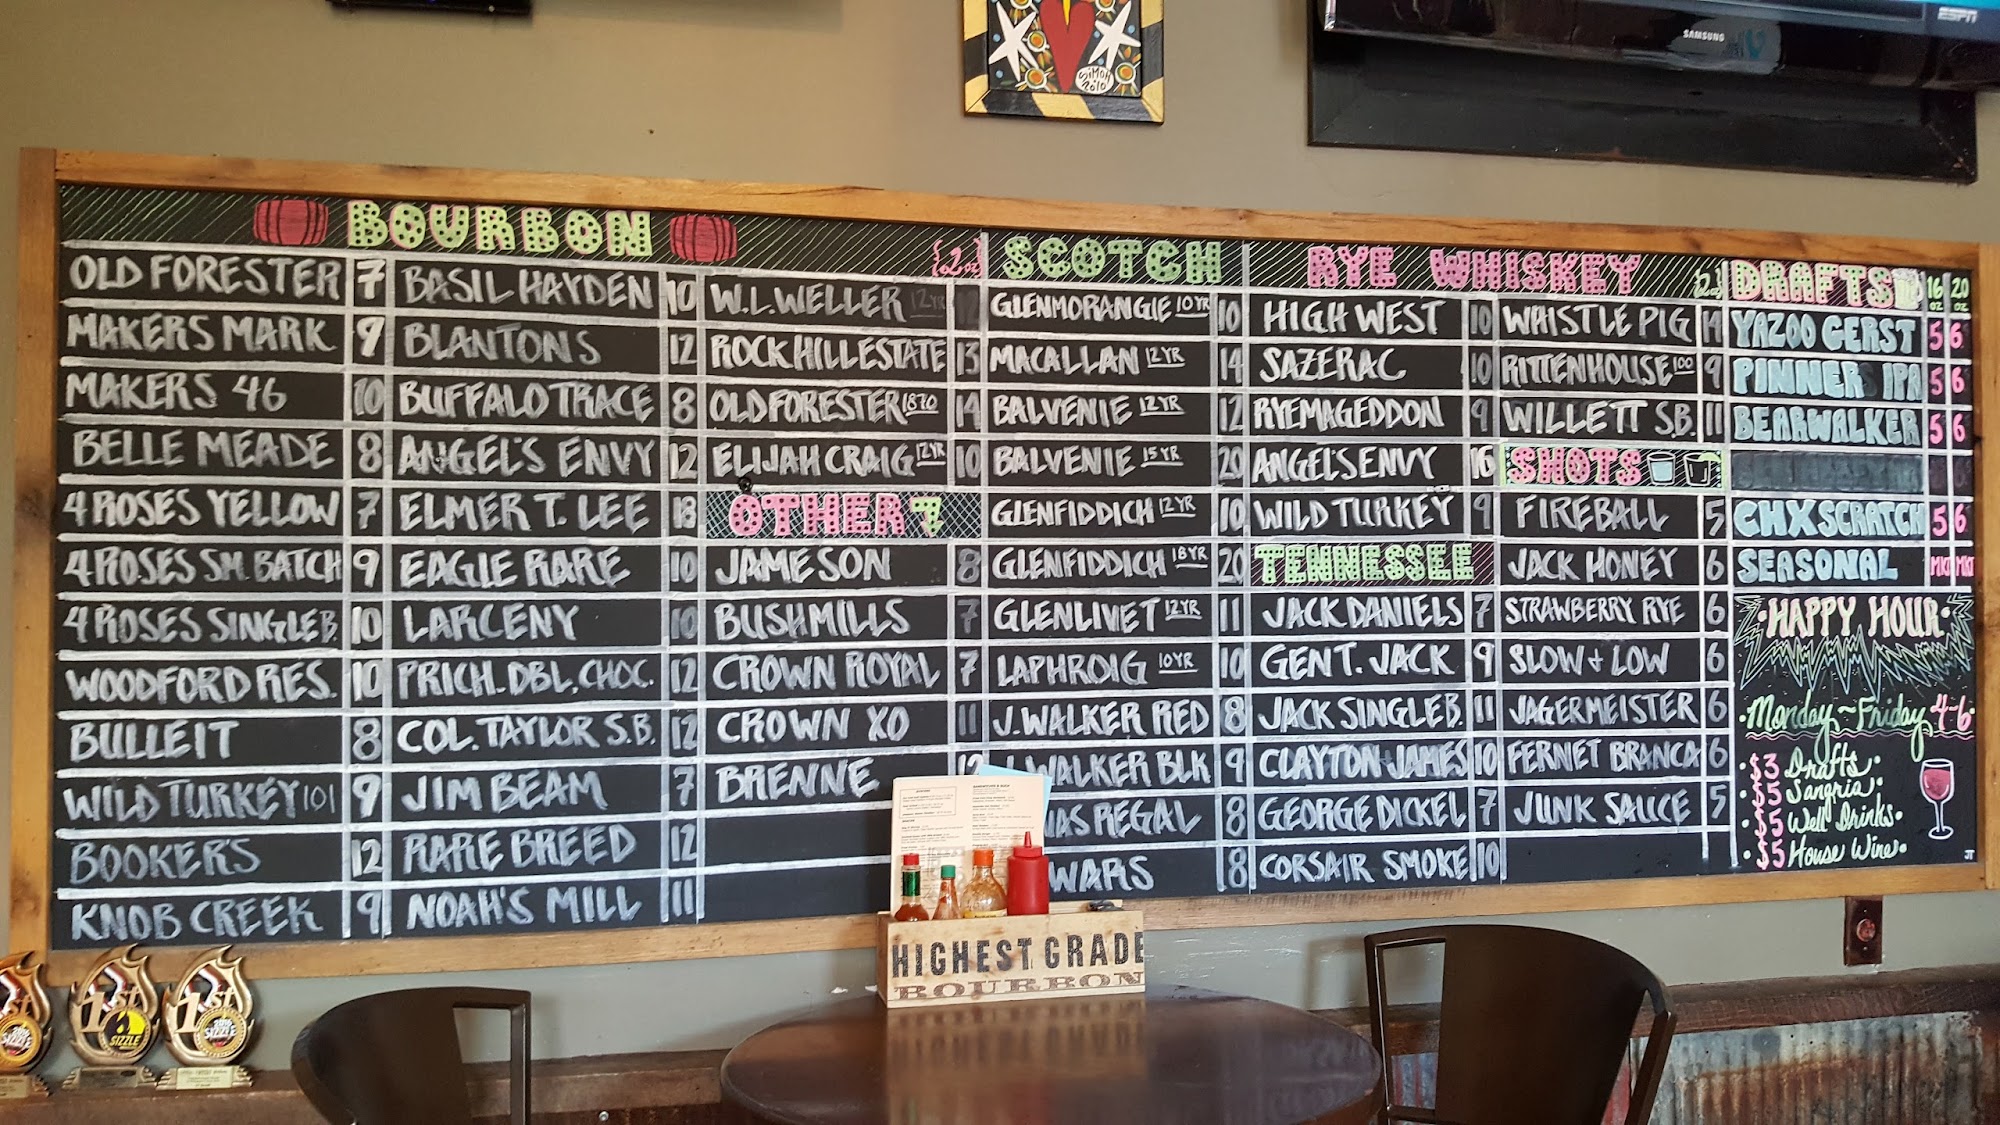 SIMON
2010
SAMSUNG
ESPN
BOURBON {2 oz}
OLD FORESTER 7
MAKERS MARK 9
MAKERS 46 10
BELLE MEADE 8
4 ROSES YELLOW 7
4 ROSES SM. BATCH 9
4 ROSES SINGLE B. 10
WOODFORD RES. 10
BULLEIT 8
WILD TURKEY 101 9
BOOKER'S 12
KNOB CREEK 9
BASIL HAYDEN 10
BLANTONS 12
BUFFALO TRACE 8
ANGEL'S ENVY 12
ELMER T. LEE 18
EAGLE RARE 10
LARCENY 10
PRICH. DBL. CHOC. 12
COL. TAYLOR S.B. 12
JIM BEAM 7
RARE BREED 12
NOAH'S MILL 11
W.L. WELLER 12YR 12
ROCK HILL ESTATE 13
OLD FORESTER 1870 14
ELIJAH CRAIG 12YR 10
OTHER
JAMESON 8
BUSHMILLS 7
CROWN ROYAL 7
CROWN XO 11
BRENNE 12
SCOTCH
GLENMORANGIE 10YR 10
MACALLAN 12YR 14
BALVENIE 12YR 12
BALVENIE 15YR 20
GLENFIDDICH 12YR 10
GLENFIDDICH 18YR 20
GLENLIVET 12YR 11
LAPHROIG 10YR 10
J. WALKER RED 8
J. WALKER BLK 9
AS REGAL 8
WARS 8
RYE WHISKEY {2oz}
HIGH WEST 10
SAZERAC 10
RYEMAGEDDON 9
ANGEL'S ENVY 16
WILD TURKEY 9
TENNESSEE
JACK DANIELS 7
GENT. JACK 9
JACK SINGLE B. 11
CLAYTON JAMES 10
GEORGE DICKEL 7
CORSAIR SMOKE 10
WHISTLE PIG 14
RITTENHOUSE 100 9
WILLETT S.B. 11
SHOTS
FIREBALL 5
JACK HONEY 6
STRAWBERRY RYE 6
SLOW + LOW 6
JAGERMEISTER 6
FERNET BRANCA 6
JUNK SAUCE 5
DRAFTS 16 oz 20 oz
YAZOO GERST 5 6
PINNER IPA 5 6
BEARWALKER 5 6
CHX SCRATCH 5 6
SEASONAL MKT MKT
HAPPY HOUR
Monday~Friday 4-6
3 Drafts
5 Sangria
5 Well Drinks
5 House Wine
JT
HIGHEST GRADE
BOURBON
1st
SIZZLE
1st
SIZZLE